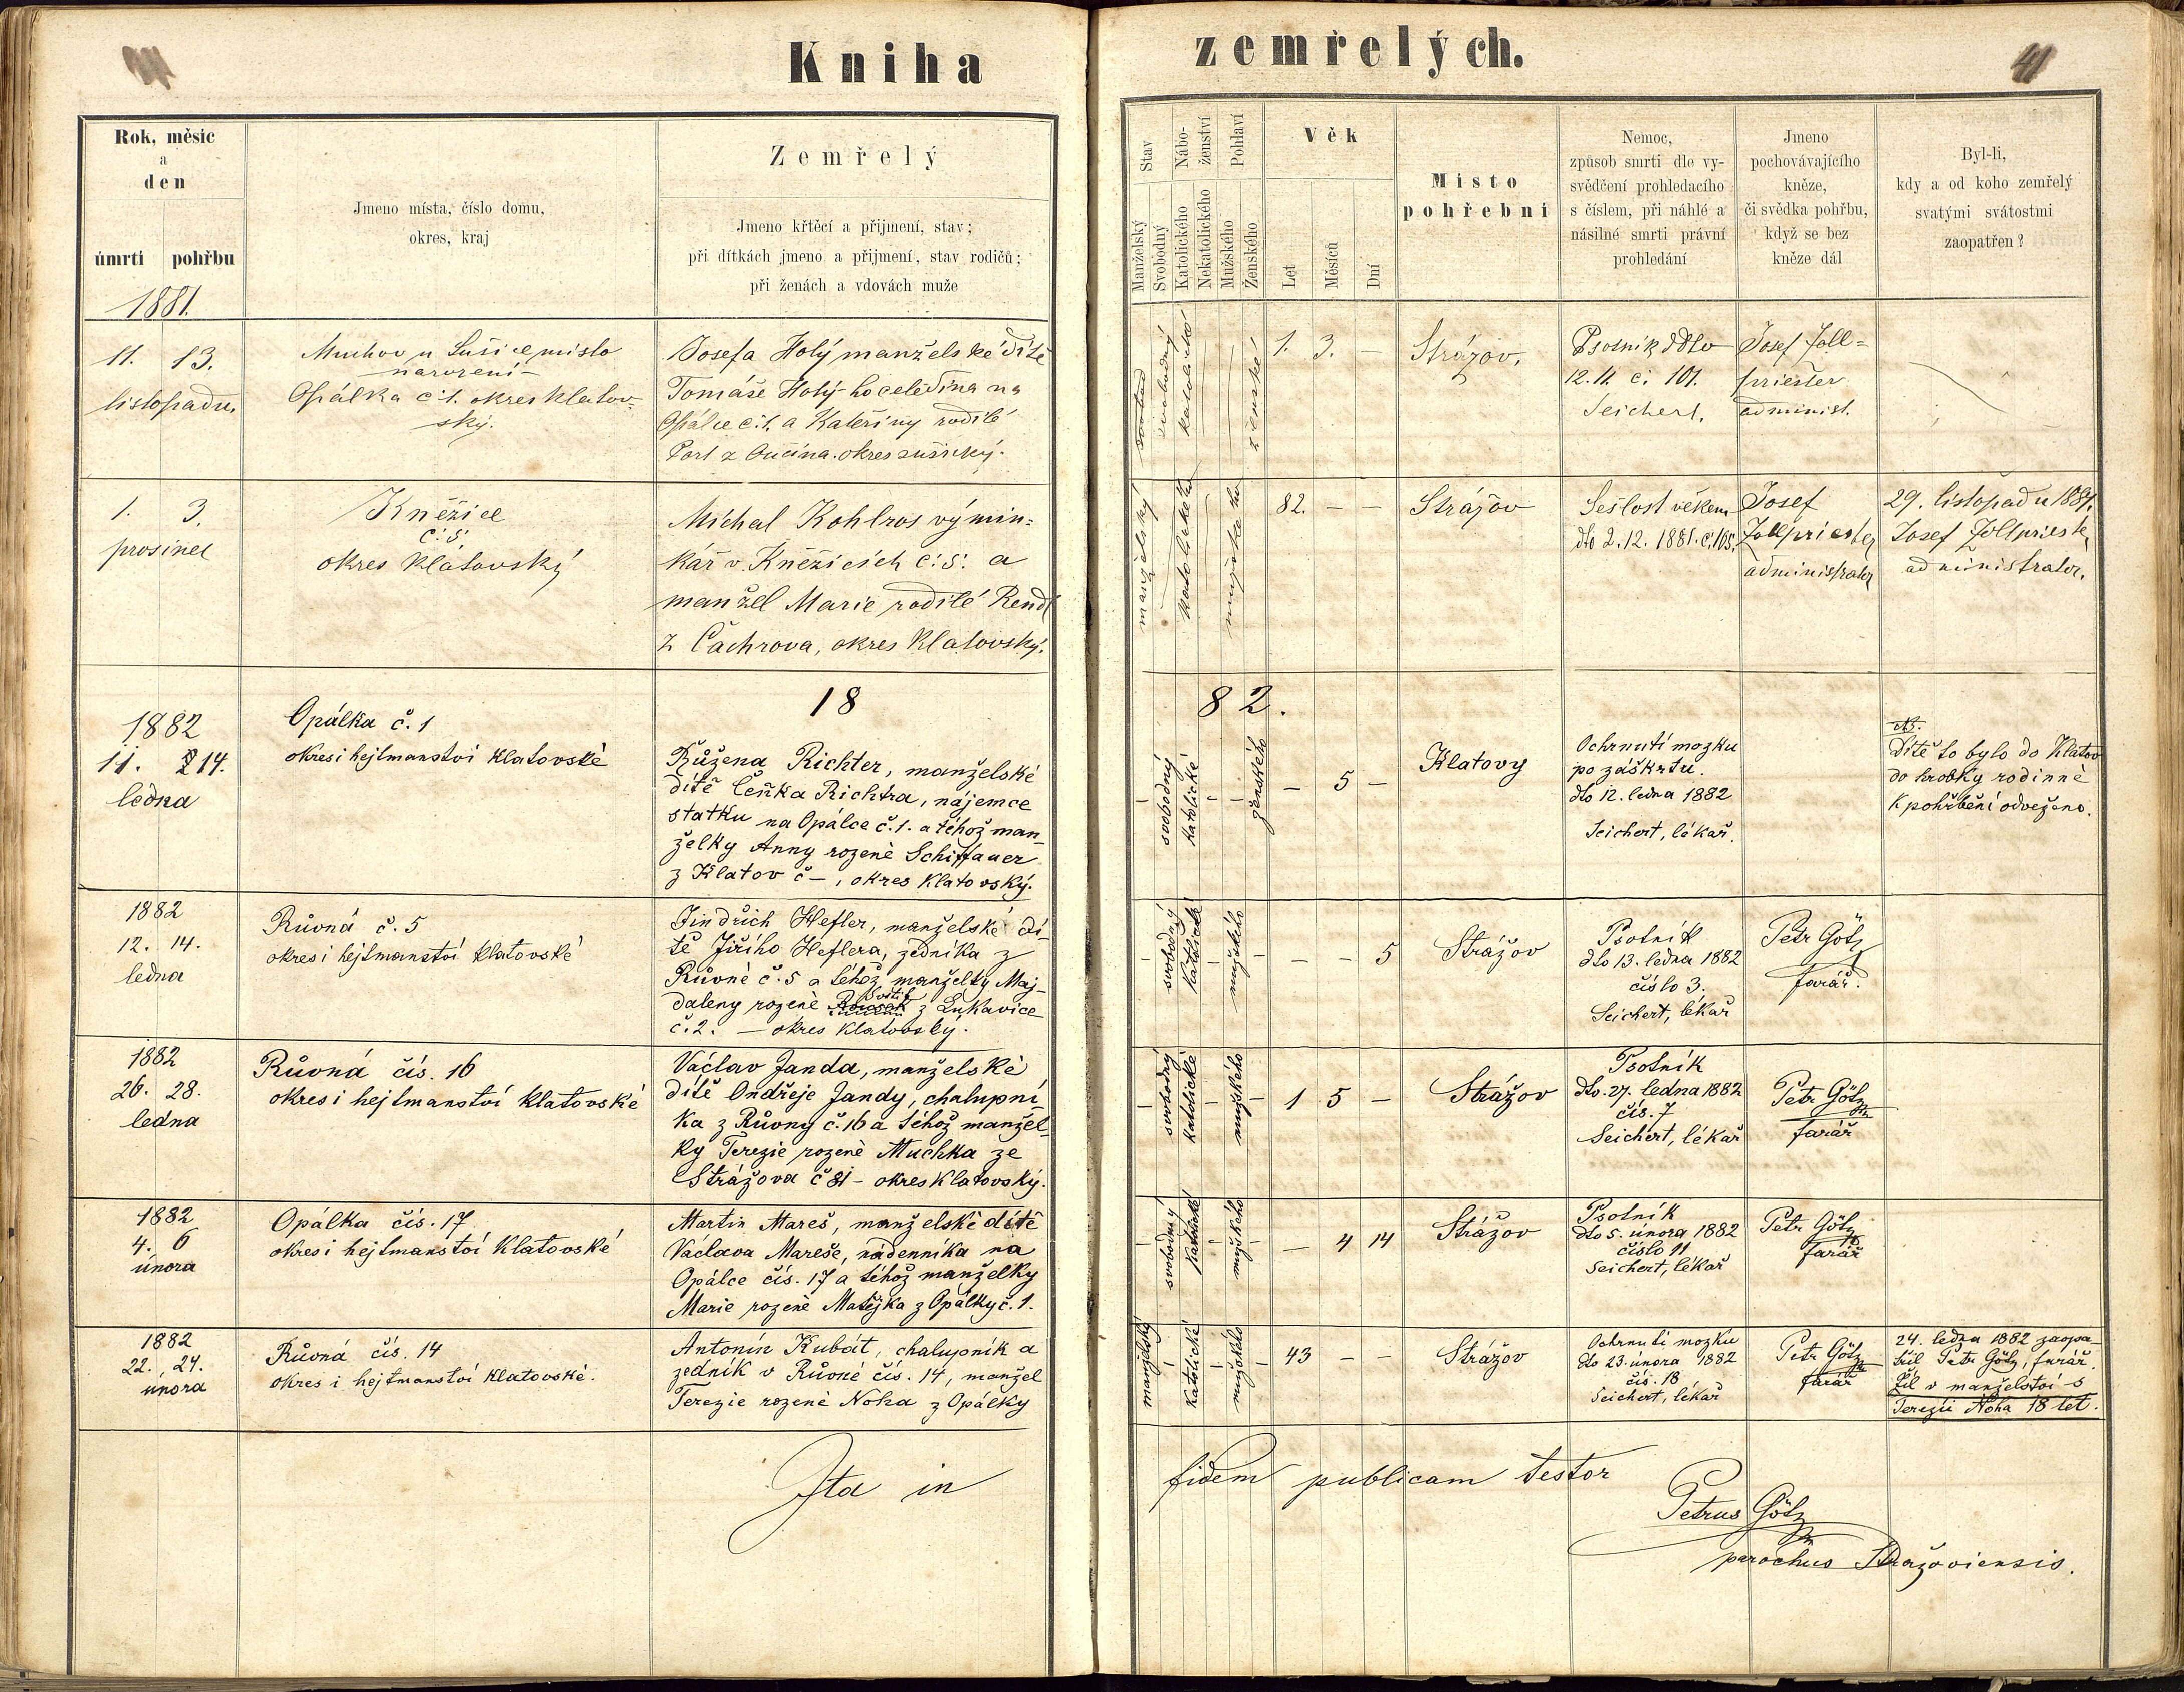 Kniha zemřelých.
41
Rok, měsíc
a
den
úmrtí pohřbu
Jmeno místa, číslo domu,
okres, kraj
Zemřelý
Jmeno křtěcí a přijmení, stav;
při dítkách jmeno a přijmení, stav rodičů;
při ženách a vdovách muže
Stav
Manželský
Svobodný
Nábo-
ženství
Katolického
Nekatolického
Pohlaví
Mužského
Ženského
Věk
Let
Měsíců
Dní
Místo
pohřební
Nemoc,
způsob smrti dle vy-
svědčení prohledacího
s číslem, při náhlé a
násilné smrti právní
prohledání
Jmeno
pochovávajícího
kněze,
či svědka pohřbu,
když se bez
kněze dál
Byl-li,
kdy a od koho zemřelý
svatými svátostmi
zaopatřen?
1881.
11. 13.
listopadu.
Muchov u Sušice místo
narození
Opálka č:1. okres klatov-
ský.
Josefa Holý manželské dítě
Tomáše Holý-ho čeledína na
Opálce č:1. a Kateřiny rodilé
z okres sušický.
svobodný
katolické
ženské
1. 3. —
Strážov.
Psotník ddto
12.11. č. 101.
Seichert.
Josef Zoll-
priester
administ.
1. 3.
prosinec
Kněžice
č:5:
okres Klatovský
Michal Kohlros výmin-
kář v Kněžicích č:5: a
manžel Marie rodilé Rendl
z Čachrova, okres Klatovský.
manželský
katolického
mužského
82. — —
Strážov
Sešlost věkem
dto 2.12. 1881. č.105.
Josef
Zollpriester
administrator
29. listopadu 1881.
Josef Zollprieste
administrator.
1882.
1882
11. 14.
ledna
Opálka č. 1
okres i hejtmanství Klatovské
Růžena Richter, manželské
dítě Čeňka Richtra, nájemce
statku na Opálce č.1. a téhož man-
želky Anny rozené Schiffauer
z Klatov č –, okres Klatovský.
— svobodný katolické — — ženského
— 5 —
Klatovy
Ochrnutí mozku
po záškrtu.
dto 12. ledna 1882
Seichert, lékař.
NB.
Dítě to bylo do Klatov
do hrobky rodinné
k pohřbení odveženo.
1882
12. 14.
ledna
Růvná č. 5
okres i hejtmanství klatovské
Jindřich Hefler, manželské dí-
tě Jiřího Heflera, zedníka z
Růvné č.5 a téhož manželky Maj-
daleny rozené z Lukavice
č.2. — okres klatovský.
— svobodný katolické — mužského —
— — 5
Strážov
Psotník
dto 13. ledna 1882
číslo 3.
Seichert, lékař
Petr Götz
farář.
1882
26. 28.
ledna
Růvná čís. 16
okres i hejtmanství klatovské
Václav Janda, manželské
dítě Ondřeje Jandy, chalupní-
ka z Růvny č.16 a téhož manžel-
ky Terezie rozené Muchka ze
Strážova č 81 – okres Klatovský.
— svobodný katolické — mužského —
1 5 —
Strážov
Psotník
dto. 27. ledna 1882
čís. 7
Seichert, lékař
Petr Götz
farář
1882
4. 6
února
Opálka čís. 17
okres i hejtmanství Klatovské
Martin Mareš, manželské dítě
Václava Mareše, nádenníka na
Opálce čís. 17 a téhož manželky
Marie rozené Matějka z Opálky č. 1.
— svobodný katolické — mužského —
— 4 14
Strážov
Psotník
dto 5. února 1882
číslo 11
Seichert, lékař
Petr Götz
farář
1882
22. 24.
února
Růvná čís. 14
okres i hejtmanství Klatovské.
Antonín Kubát, chalupník a
zedník v Růvné čís. 14, manžel
Terezie rozené Noha z Opálky
manželský katolické — mužského —
43 — —
Strážov
Ochrnutí mozku
dto 23. února 1882
čís. 18
Seichert, lékař
Petr Götz
farář
24. ledna 1882 zaopa-
třil Petr Götz, farář.
Žil v manželství s
Terezií Noha 18 let.
Ita in fidem publicam testor
Petrus Götz
parochus Stražoviensis.